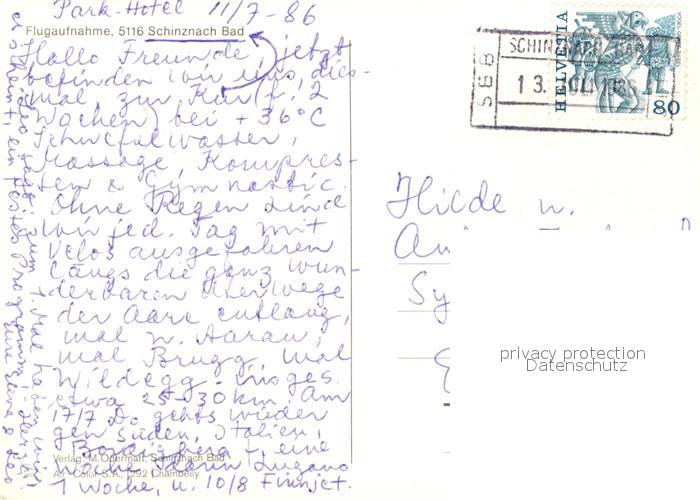 Park-Hotel 11/7-86
Flugaufnahme, 5116 Schinznach Bad
Hallo Freunde, jetzt
befinden wir uns, dies-
mal zur Kur (f. 2
Wochen) bei + 36°C
Schwefelwasser,
Massage, Kompres-
sen & Gymnastic.
Ohne Regen sind
wir jed. Tag mit
Velos ausgefahren
längs die ganz wun-
derbaren Uferwege
der Aare entlang,
mal n. Aarau,
mal Brugg, mal
Wildegg. insges.
etwa 25-30 km. Am
17/7 Do. gehts wieder
gen Süden, Italien,
eine
Woche dann Lugano
1 Woche, u. 10/8 Finnjet.
Verlag: M. Odermatt, Schinznach Bad
Color S.A., 1292 Chambésy
zum 1. Mal haben wir
erscheint, ein festes Programm!
SBB
SCHINZNACH BAD
13. JUL 1986
HELVETIA
80
Hilde u.
An
Sy
privacy protection
Datenschutz